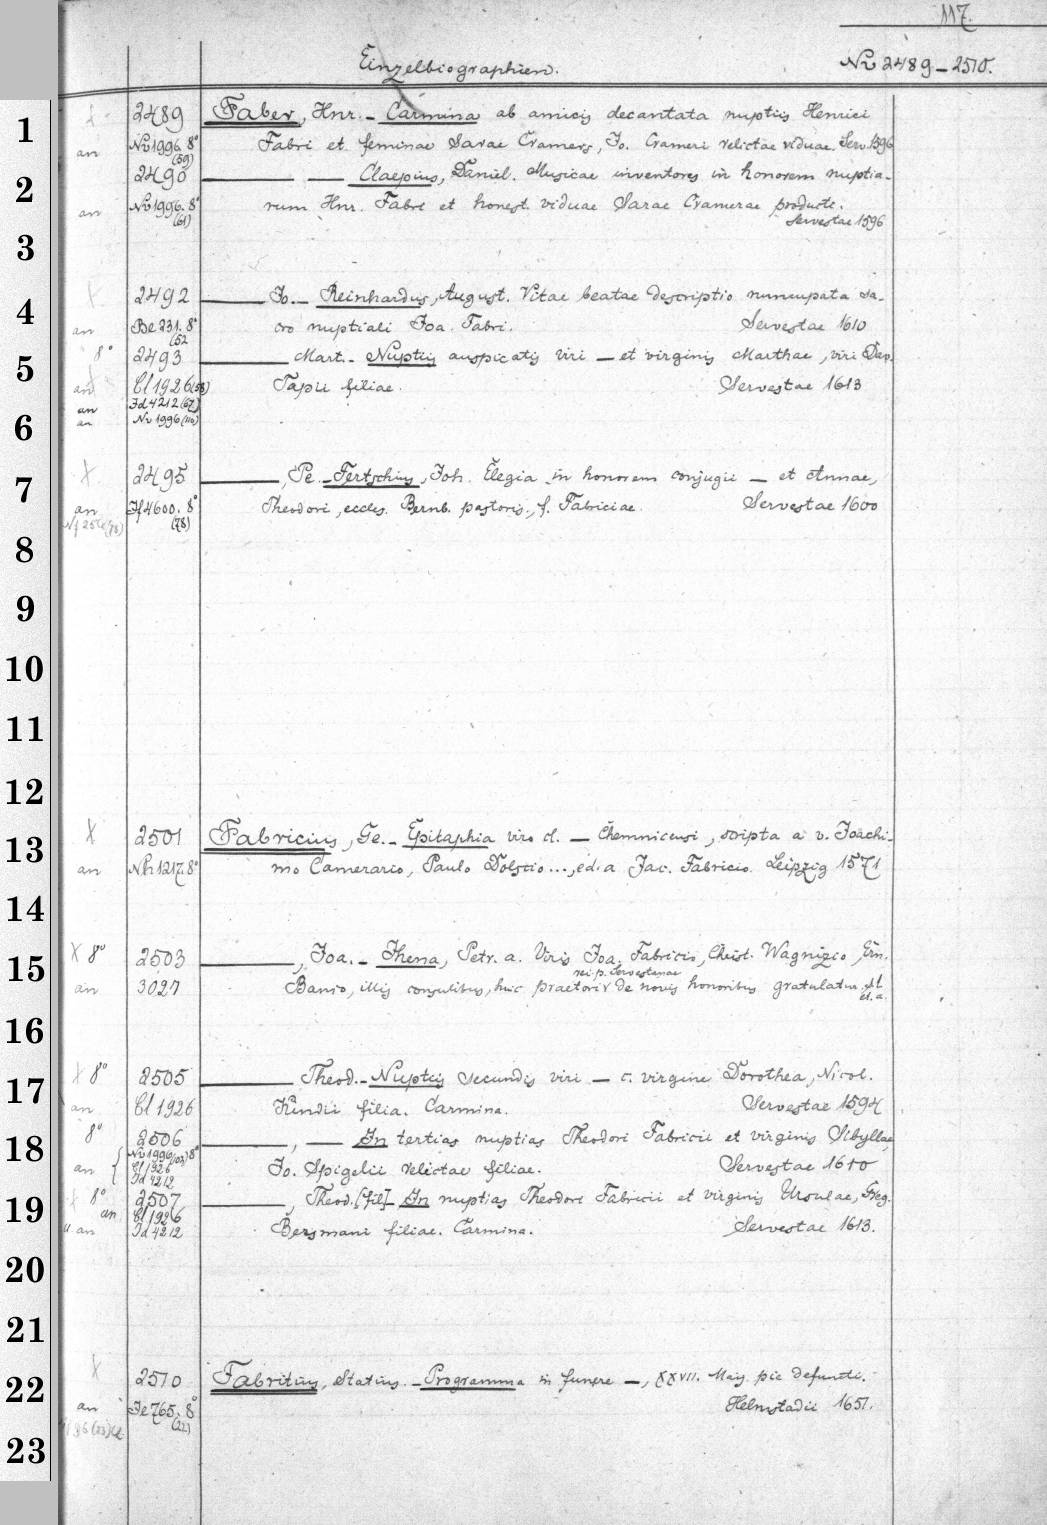 117.
Einzelbiographien. Nv 2489-2510.
1 2489 Faber, Hnr. - Carmina ab amicis decantata nuptiis Henrici
an Nv 1996. 8° (59) Fabri et feminae Sarae Cramers, Jo. Crameri relictae viduae. Serv. 1596
2 2490 — — Claepius, Daniel. Musicae inventores in honorem nuptia-
an Nv 1996. 8° (61) rum Hnr. Fabri et honest. viduae Sarae Cramerae producti.
Servestae 1596
3
4 2492 — Jo. - Reinhardus, August. Vitae beatae descriptio nuncupata sa-
an Be 231. 8° (52 cro nuptiali Joa. Fabri. Servestae 1610
5 8° 2493 — Mart. - Nuptiis auspicatis viri — et virginis Marthae, viri Dav.
an Cl 1926 (58) Tapii filiae. Servestae 1613
an Jd 4212 (67)
6 an Nv 1996 (110)
7 X 2495 —, Pe. - Fertschius, Joh. Elegia in honorem conjugii — et Annae,
an Jf 4600. 8° (78) Theodori, eccles. Bernb. pastoris, f. Fabriciae. Servestae 1600
8
9
10
11
12
13 X 2501 Fabricius, Ge. - Epitaphia viro cl. — Chemnicensi, scripta a v. Joachi-
an Nh 1217. 8° mo Camerario, Paulo Dolscio..., ed. a Jac. Fabricio. Leipzig 1571
14
15 X 8° 2503 —, Joa. - Thena, Petr. a. Viris Joa. Fabricio, Christ. Wagnizio, Ern.
rei p. Servestanae
an 3027 Banso, illis consulibus, huic praetori de novis honoribus gratulatur
et. a.
16
17 X 8° 2505 — Theod. - Nuptiis secundis viri — c. virgine Dorothea, Nicol.
an Cl 1926 Kindii filia. Carmina. Servestae 1594
18 8° 2506 —, — In tertias nuptias Theodori Fabricii et virginis Sibyllae,
Nv 1996 (103) 8°
an { Cl 1926 Jo. Spigelii relictae filiae. Servestae 1610
Jd 4212
19 8° 2507 —, Theod. [fil] - In nuptias Theodori Fabricii et virginis Ursulae, Greg.
an Cl 1926
" an Jd 4212 Bersmani filiae. Carmina. Servestae 1613.
20
21
22 X 2510 Fabritius, Statius. - Programma in funere —, XXVII. Maij pie defuncti.
an Je 765. 8° (22) Helmstadii 1651.
23